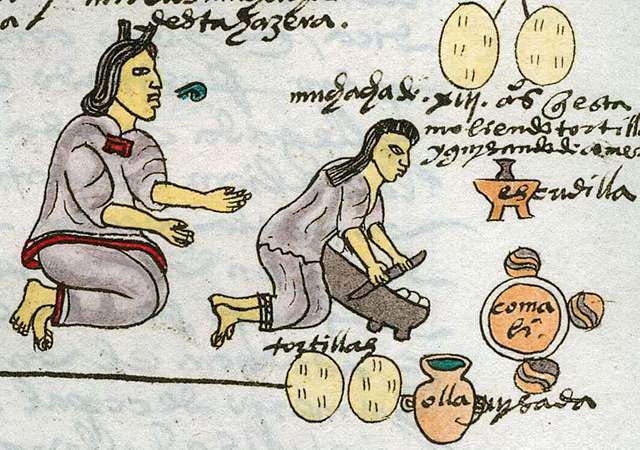 desta hazera.
muchacha de .xiii. años q̃ esta
moliendo tortillas
y guisando de comer
escudilla
comali.
tortillas
olla
guisada